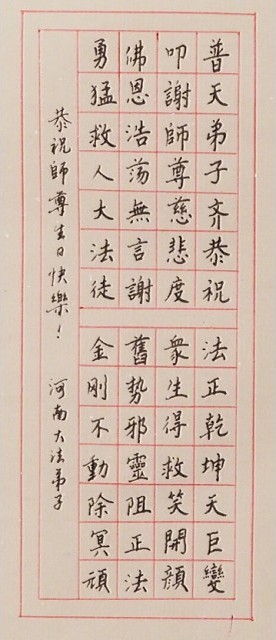 普天弟子齐恭祝
法正乾坤天巨變
叩謝師尊慈悲度
衆生得救笑開顔
佛恩浩荡無言謝
舊势邪靈阻正法
勇猛救人大法徒
金剛不動除冥頑
恭祝師尊生日快樂！
河南大法弟子